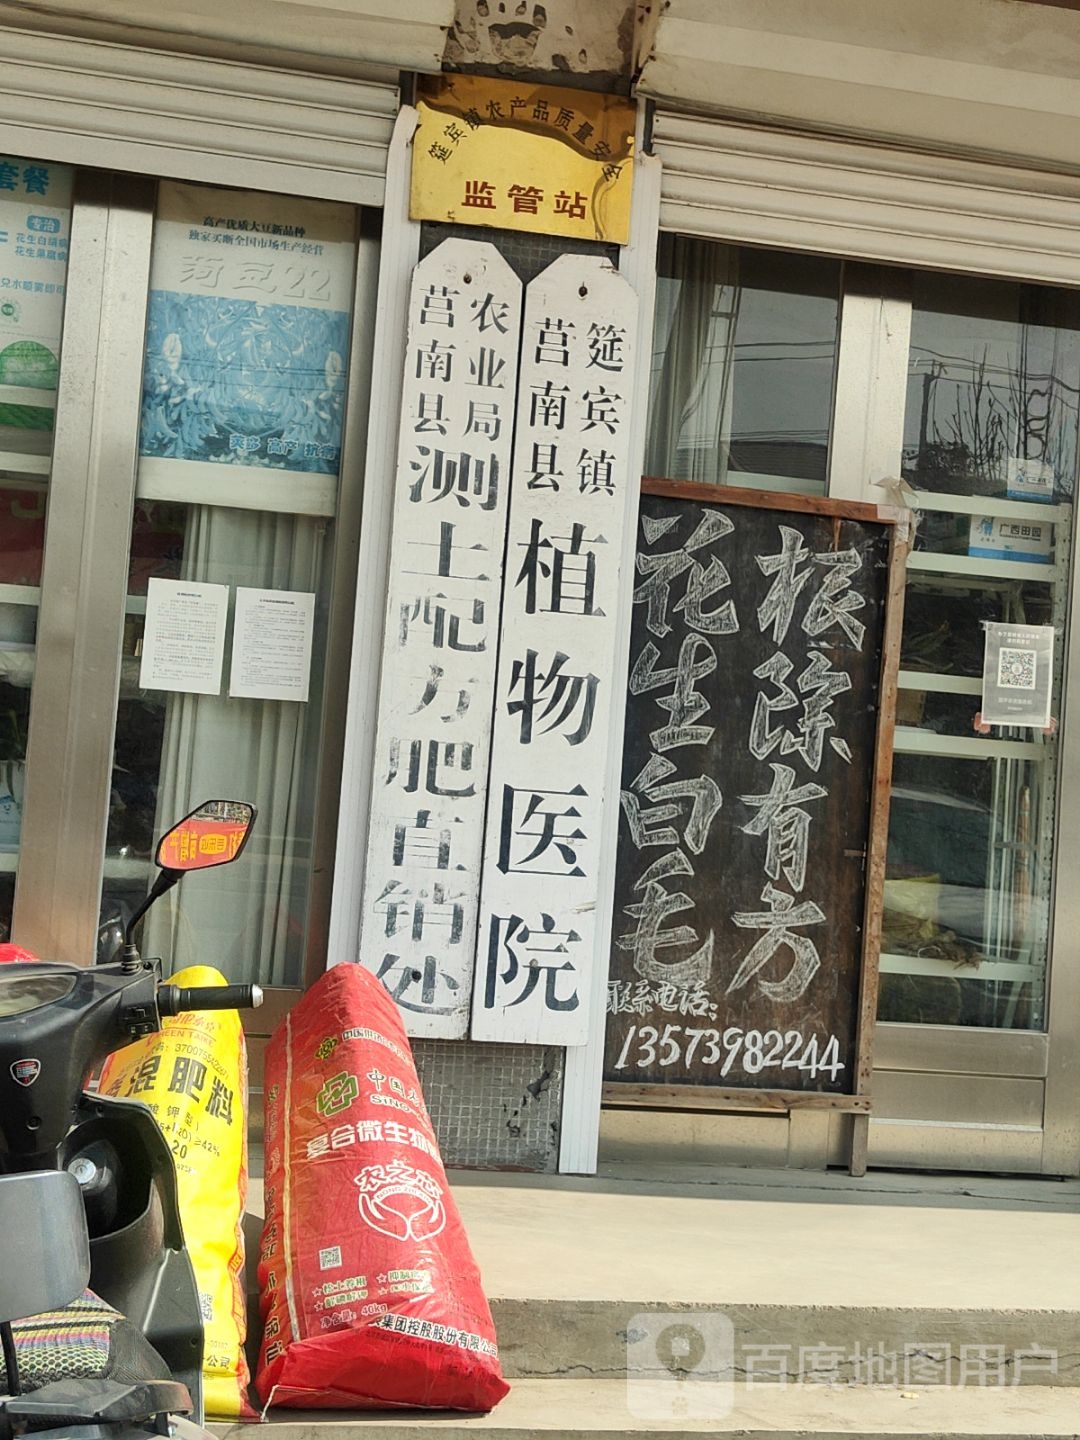 筵宾镇农产品质量安全
监管站
莒南县农业局
测土配方肥直销处
莒南县筵宾镇
植物医院
根除有方
花生白毛
联系电话:
13573982244
套餐
专治
花生白绢病
花生果腐病
兑水喷雾即可
高产优质大豆新品种
独家买断全国市场生产经营
菏豆22
高产 抗病
广西田园
混肥料
≥42%
复合微生物
农之芯
中国
SiNO-
净含量: 40kg
集团控股股份有限公司
百度地图用户